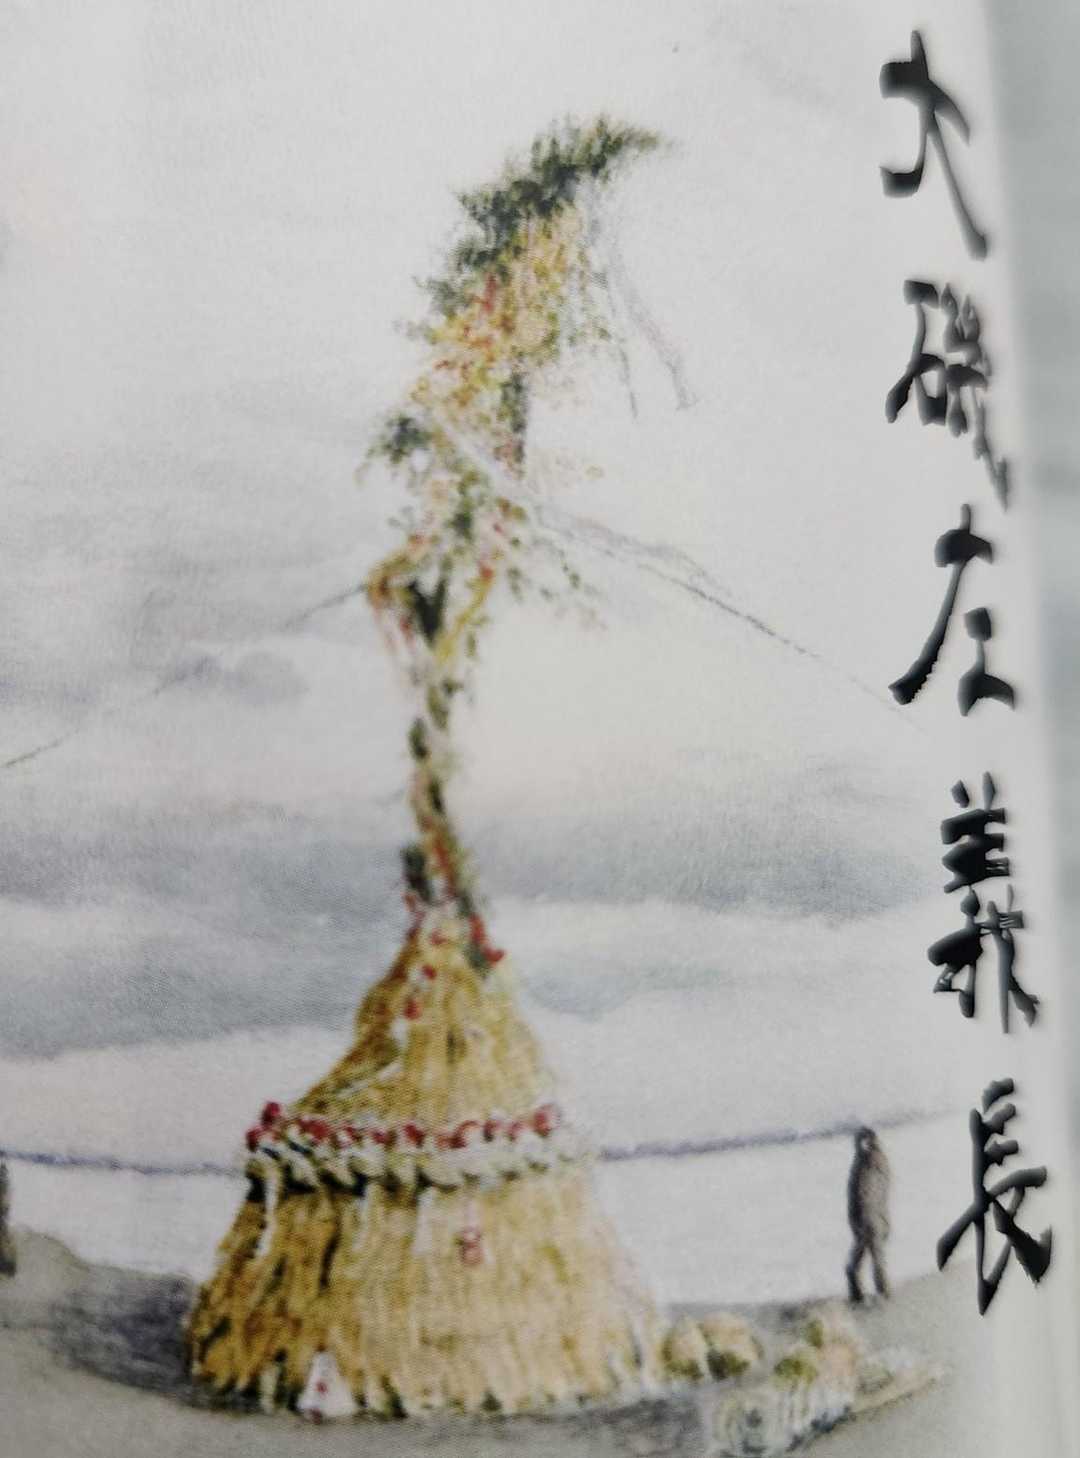 大磯左義長